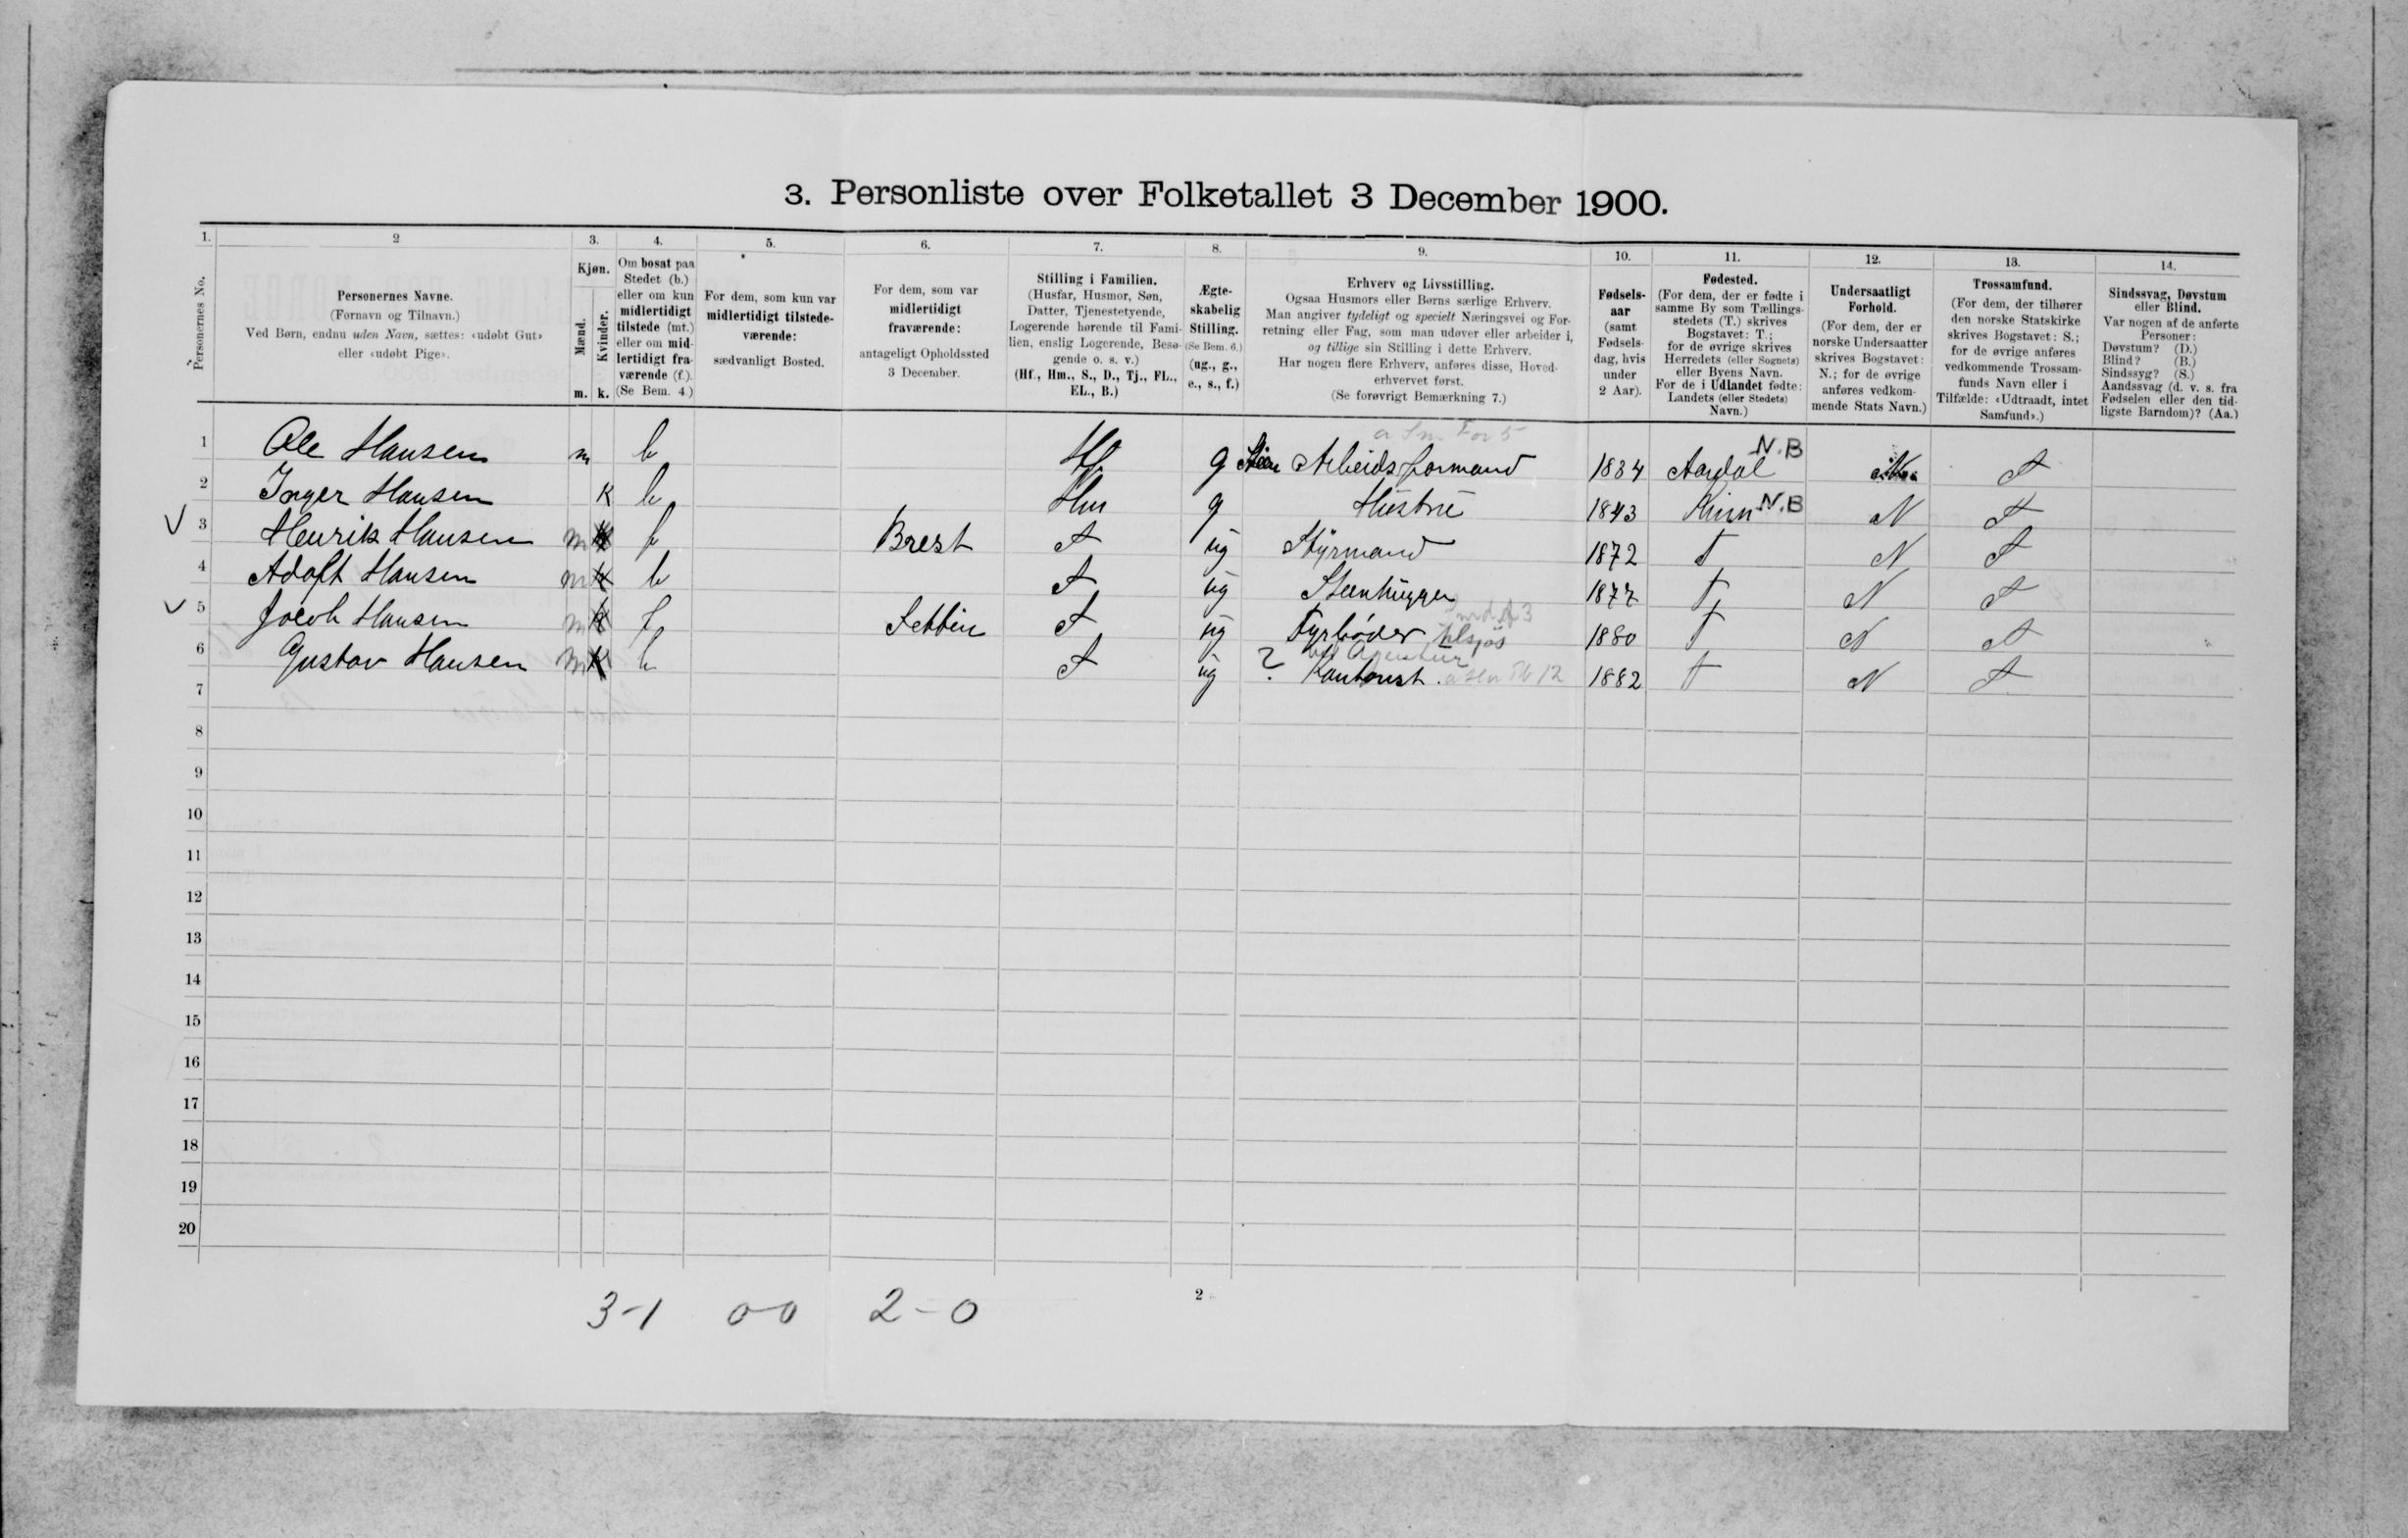 3. Personliste over Folketallet 3 December 1900.
1. 2 3. 4. 5. 6. 7. 8. 9. 10. 11. 12. 13. 14.
Personernes No.
Personernes Navne.
(Fornavn og Tilnavn.)
Ved Børn, endnu uden Navn, sættes: «udøbt Gut»
eller «udøbt Pige».
Kjøn.
Mænd.
Kvinder.
m. k.
Om bosat paa
Stedet (b.)
eller om kun
midlertidigt
tilstede (mt.)
eller om mid-
lertidigt fra-
værende (f.).
(Se Bem. 4.)
For dem, som kun var
midlertidigt tilstede-
værende:
sædvanligt Bosted.
For dem, som var
midlertidigt
fraværende:
antageligt Opholdssted
3 December.
Stilling i Familien.
(Husfar, Husmor, Søn,
Datter, Tjenestetyende,
Logerende hørende til Fami-
lien, enslig Logerende, Besø-
gende o. s. v.)
(Hf., Hm., S., D., Tj., FL.,
EL., B.)
Ægte-
skabelig
Stilling.
(Se Bem. 6.)
(ug., g.,
e., s., f.)
Erhverv og Livsstilling.
Ogsaa Husmors eller Børns særlige Erhverv.
Man angiver tydeligt og specielt Næringsvei og For-
retning eller Fag, som man udøver eller arbeider i,
og tillige sin Stilling i dette Erhverv.
Har nogen flere Erhverv, anføres disse, Hoved-
erhvervet først.
(Se forøvrigt Bemærkning 7.)
Fødsels-
aar
(samt
Fødsels-
dag, hvis
under
2 Aar).
Fødested.
(For dem, der er fødte i
samme By som Tællings-
stedets (T.) skrives
Bogstavet: T.;
for de øvrige skrives
Herredets (eller Sognets)
eller Byens Navn.
For de i Udlandet fødte:
Landets (eller Stedets)
Navn.)
Undersaatligt
Forhold.
(For dem, der er
norske Undersaatter
skrives Bogstavet:
N.; for de øvrige
anføres vedkom-
mende Stats Navn.)
Trossamfund.
(For dem, der tilhører
den norske Statskirke
skrives Bogstavet: S.;
for de øvrige anføres
vedkommende Trossam-
funds Navn eller i
Tilfælde: «Udtraadt, intet
Samfund».)
Sindssvag, Døvstum
eller Blind.
Var nogen af de anførte
Personer:
Døvstum? (D.)
Blind? (B.)
Sindssyg? (S.)
Aandssvag (d. v. s. fra
Fødselen eller den tid-
ligste Barndom)? (Aa.)
1 Ole Hansen m b Hf g Arbeidsformand 1834 Aardal N.B N S
2 Inger Hansen K b Hm g Hustru 1843 Kinn N.B N S
V 3 Henrik Hansen m f Brest S ug Styrmand 1872 T N S
4 Adolf Hansen m b S ug Steenhugger 1877 T N S
V 5 Jacob Hansen m f Settin S ug Fyrbøder tilsjøs 1880 T N S
6 Gustav Hansen m b S ug ? Kontorist ved Agentur 1882 T N S
7
8
9
10
11
12
13
14
15
16
17
18
19
20
3-1 0-0 2-0
2